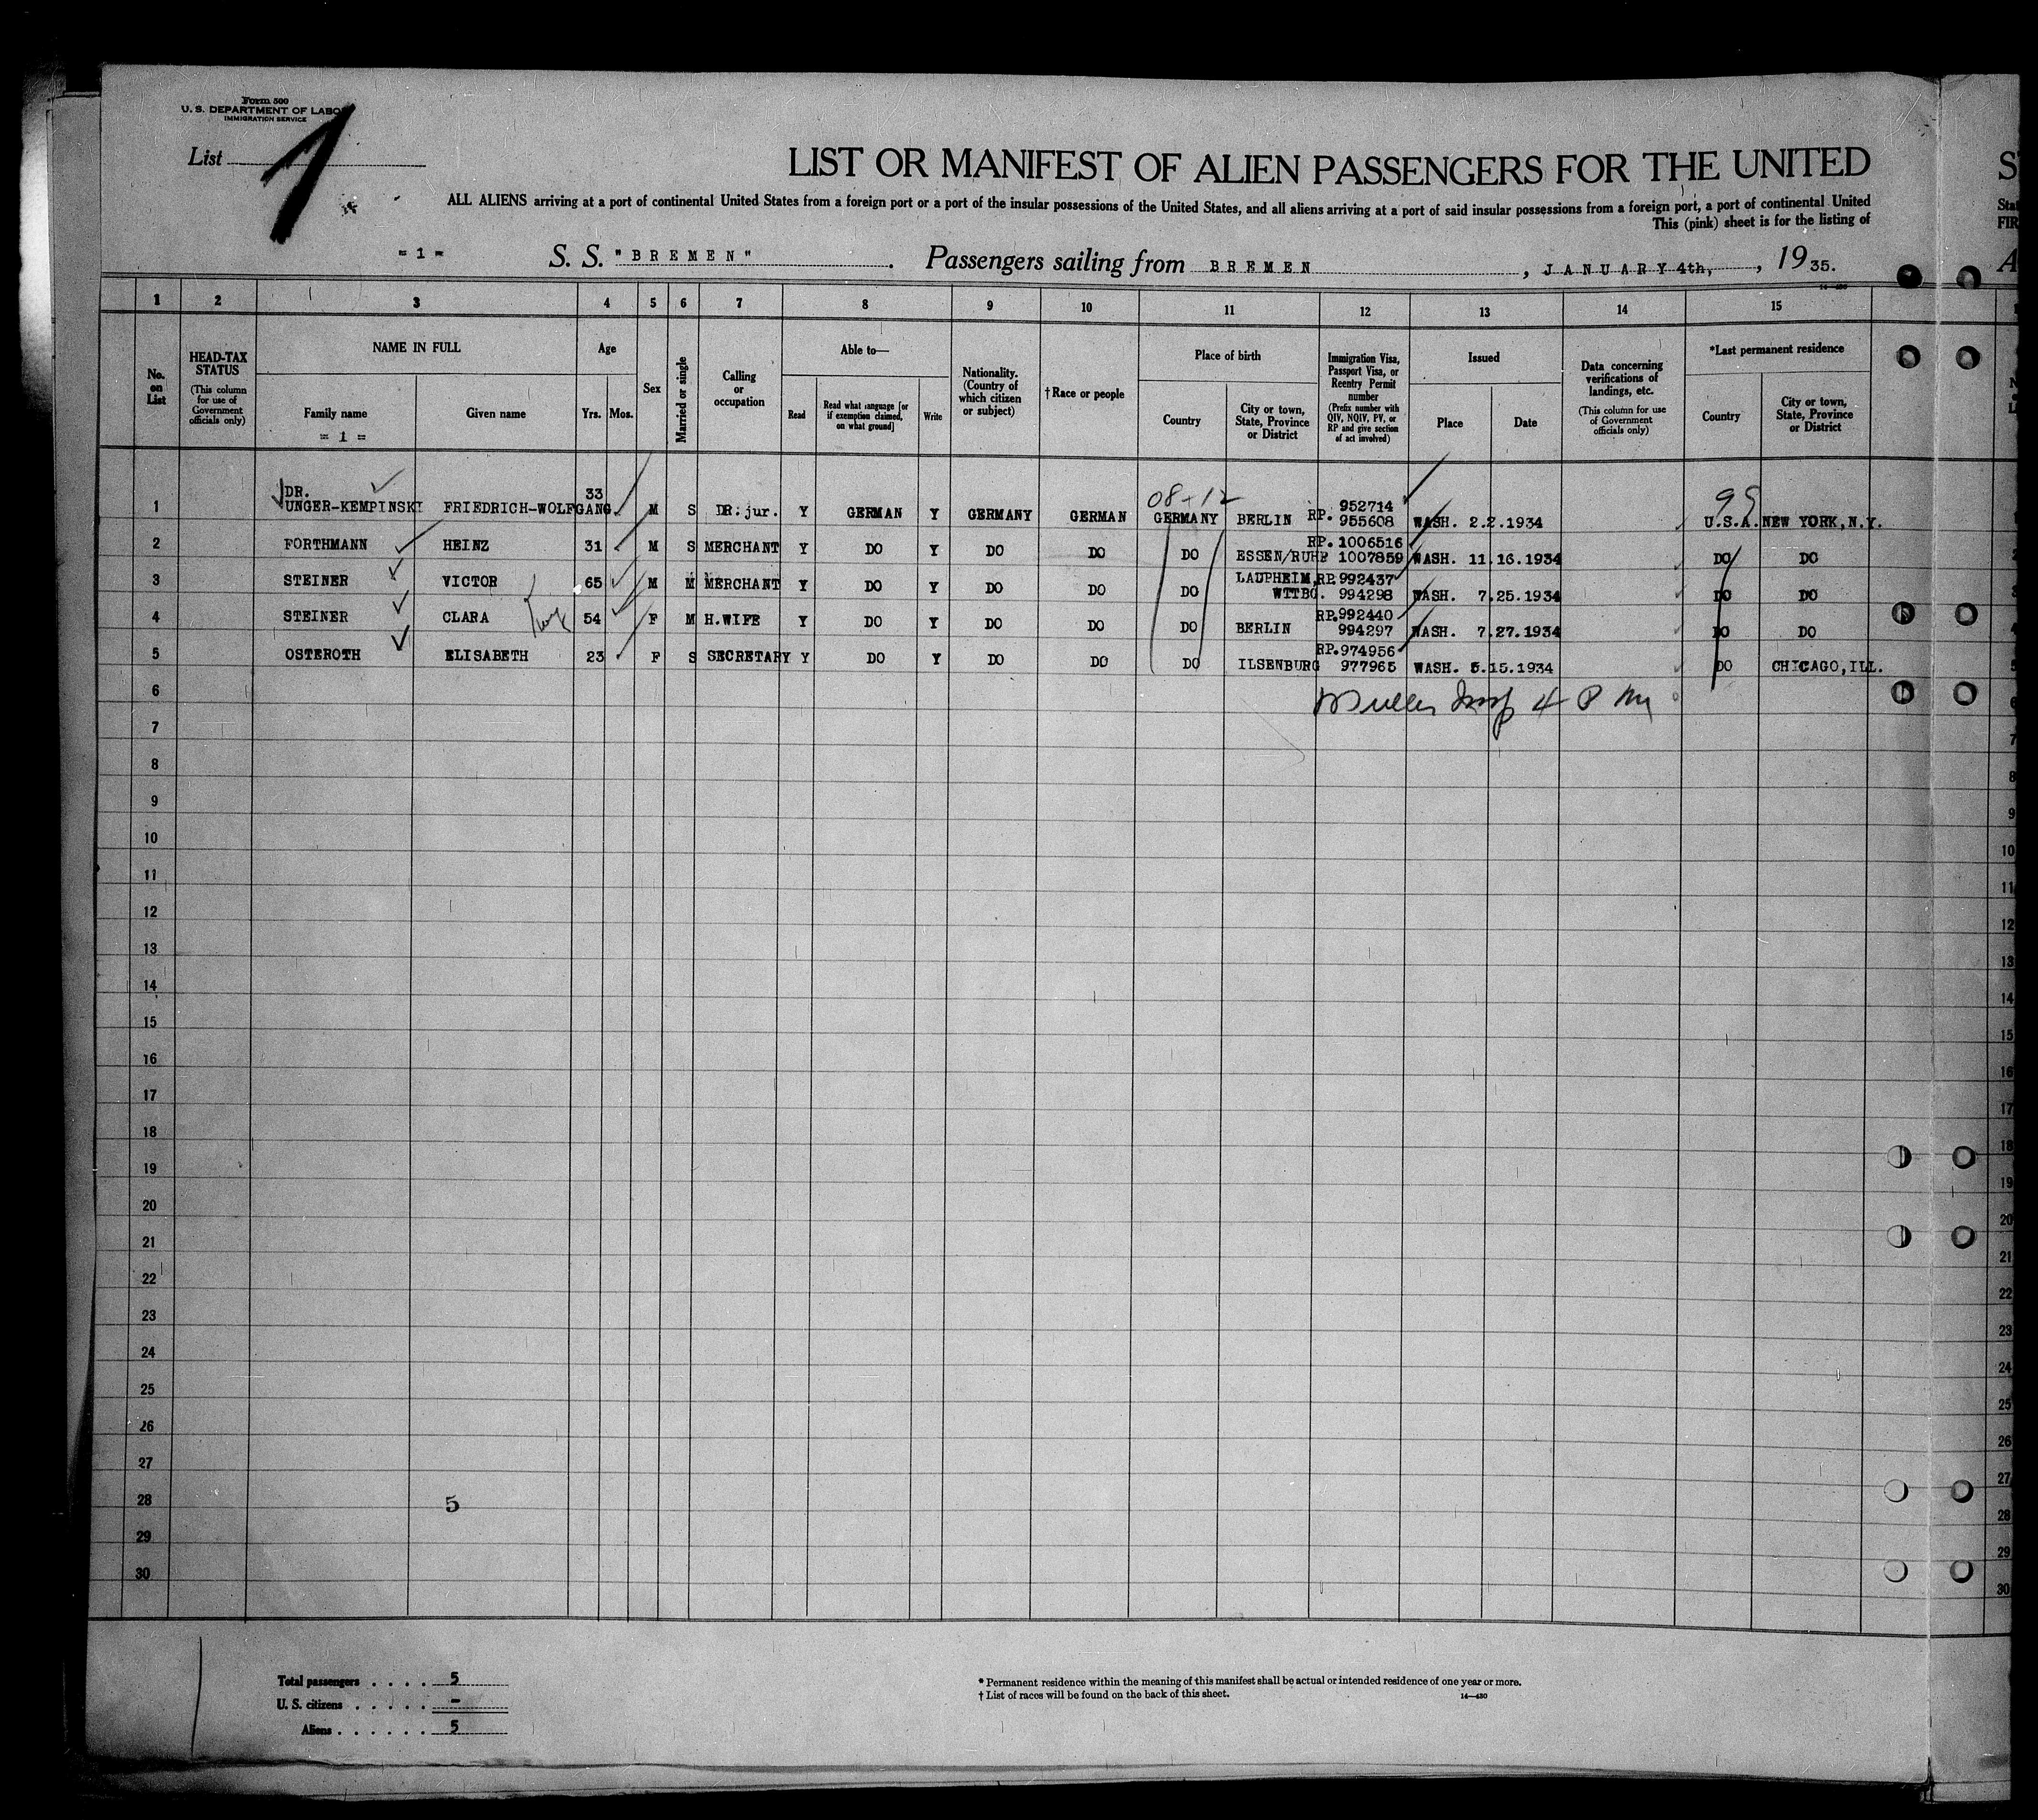 Form 500
U. S. DEPARTMENT OF LABOR
IMMIGRATION SERVICE
List 1
LIST OR MANIFEST OF ALIEN PASSENGERS FOR THE UNITED
ALL ALIENS arriving at a port of continental United States from a foreign port or a port of the insular possessions of the United States, and all aliens arriving at a port of said insular possessions from a foreign port, a port of continental United
This (pink) sheet is for the listing of
= 1 = S. S. "BREMEN". Passengers sailing from BREMEN, JANUARY 4th, , 1935.
1 2 3 4 5 6 7 8 9 10 11 12 13 14 15
No. on List
HEAD-TAX STATUS (This column for use of Government officials only)
NAME IN FULL
Family name Given name
= 1 =
Age
Yrs. Mos.
Sex
Married or single
Calling or occupation
Able to—
Read Read what language [or if exemption claimed, on what ground] Write
Nationality. (Country of which citizen or subject)
†Race or people
Place of birth
Country City or town, State, Province or District
Immigration Visa, Passport Visa, or Reentry Permit number (Prefix number with QIV, NQIV, PV, or RP and give section of act involved)
Issued
Place Date
Data concerning verifications of landings, etc. (This column for use of Government officials only)
*Last permanent residence
Country City or town, State, Province or District
08-12 99
1 DR. UNGER-KEMPINSKI FRIEDRICH-WOLFGANG 33 M S DR.jur. Y GERMAN Y GERMANY GERMAN GERMANY BERLIN RP. 952714 955608 WASH. 2.2.1934 U.S.A. NEW YORK,N.Y.
2 FORTHMANN HEINZ 31 M S MERCHANT Y DO Y DO DO DO ESSEN/RUHR RP. 1006516 1007859 WASH. 11.16.1934 DO DO
3 STEINER VICTOR 65 M M MERCHANT Y DO Y DO DO DO LAUPHEIM, WTTBG. RP. 992437 994298 WASH. 7.25.1934 DO DO
4 STEINER CLARA 54 F M H.WIFE Y DO Y DO DO DO BERLIN RP. 992440 994297 WASH. 7.27.1934 DO DO
5 OSTEROTH ELISABETH 23 F S SECRETARY Y DO Y DO DO DO ILSENBURG RP. 974956 977965 WASH. 5.15.1934 DO CHICAGO,ILL.
6
7
8
9
10
11
12
13
14
15
16
17
18
19
20
21
22
23
24
25
26
27
28 5
29
30
Total passengers . . . . 5
U. S. citizens . . . . . -
Aliens . . . . . . 5
* Permanent residence within the meaning of this manifest shall be actual or intended residence of one year or more.
† List of races will be found on the back of this sheet. 14—430